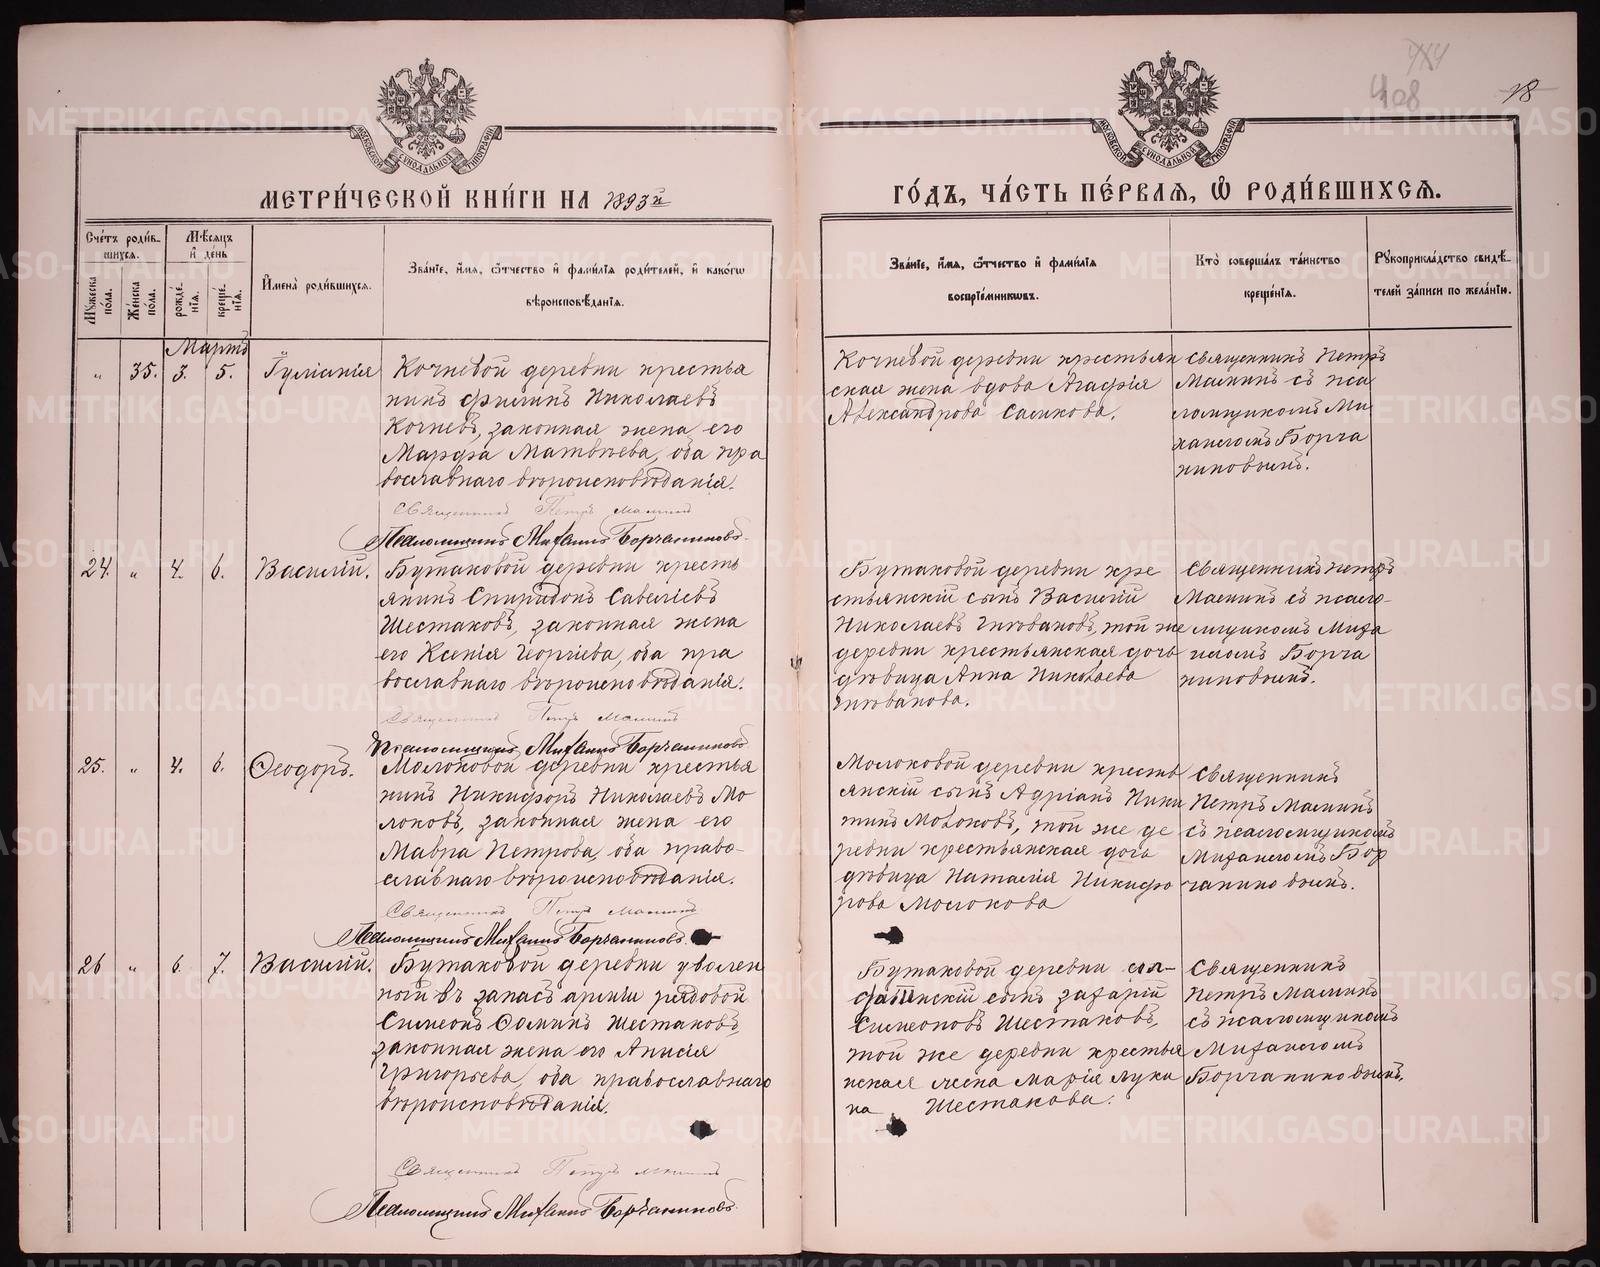 МЕТРИ́ЧЕСКОЙ КНИ́ГИ НА 1893й
ГО́ДЪ, ЧА́СТЬ ПЕ́РВАЯ, Ѽ РОДИ́ВШИХСЯ.
408
18
Сче́тъ роди́в-
шихся.
Мѣ́сяцъ
и҆ де́нь
Мꙋ́жеска
пола.
Же́нска
пола.
рожде́-
нїѧ.
креще́-
нїѧ.
И҆мена̀ роди́вшихся.
Зва́нїе, и҆́мѧ, ѻ҆́тчество и҆ фами́лїѧ роди́телей, и҆ како́гѡ
вѣроисповѣ́данїѧ.
Зва́нїе, и҆́мѧ, ѻ҆́тчество и҆ фами́лїѧ
воспрїе́мникѡвъ.
Кто̀ соверша́лъ та́инство
креще́нїѧ.
Рꙋкоприкла́дство свидѣ́-
телей за́писи по жела́нїю.
Мартъ
„ 35. 3. 5. Іуліанія
Кочневой деревни крестья
нинъ Филипъ Николаевъ
Кочневъ, законная жена его
Марфа Матвѣева, оба пра
вославнаго вѣроисповѣданія.
Священникъ Петръ Маминъ
Псаломщикъ Михаилъ Борчаниновъ.
Кочневой деревни крестьян
ская жена вдова Агафія
Александрова Саликова.
Священникъ Петръ
Маминъ съ пса
ломщикомъ Ми
хаиломъ Борча
ниновымъ.
24. „ 4. 6. Василій.
Бутаковой деревни кресть
янинъ Спиридонъ Савеліевъ
Шестаковъ, законная жена
его Ксенія Георгіева, оба пра
вославнаго вѣроисповѣданія.
Священникъ Петръ Маминъ
Псаломщикъ Михаилъ Борчаниновъ.
Бутаковой деревни кре
стьянскій сынъ Василій
Николаевъ той же
деревни крестьянская дочь
дѣвица Анна Николаева
Священникъ Петръ
Маминъ съ псало-
мщикомъ Миха
иломъ Борча
ниновымъ.
25. „ 4. 6. Ѳеодоръ.
Молоковой деревни крестья
нинъ Никифоръ Николаевъ Мо
локовъ, законная жена его
Мавра Петрова, оба право-
славнаго вѣроисповѣданія.
Священникъ Петръ Маминъ
Псаломщикъ Михаилъ Борчаниновъ.
Молоковой деревни кресть
янскій сынъ Адріанъ Ники
тинъ Молоковъ, той же де
ревни крестьянская дочь
дѣвица Наталія Никифо
рова Молокова
Священникъ
Петръ Маминъ
съ псаломщикомъ
Михаиломъ Бор
чаниновымъ.
26 „ 6. 7. Василій.
Бутаковой деревни уволен
ной въ запасъ арміи рядовой
Симеонъ Ѳоминъ Шестаковъ,
законная жена его Анисія
Григорьева, оба православнаго
вѣроисповѣданія.
Священникъ Петръ Маминъ
Псаломщикъ Михаилъ Борчаниновъ.
Бутаковой деревни сол-
датскій сынъ Захарій
Симеоновъ Шестаковъ,
той же деревни крестья
нская жена Марія Луки
на Шестакова.
Священникъ
Петръ Маминъ
съ псаломщикомъ
Михаиломъ
Борчаниновымъ.
METRIKI.GASO-URAL.RU